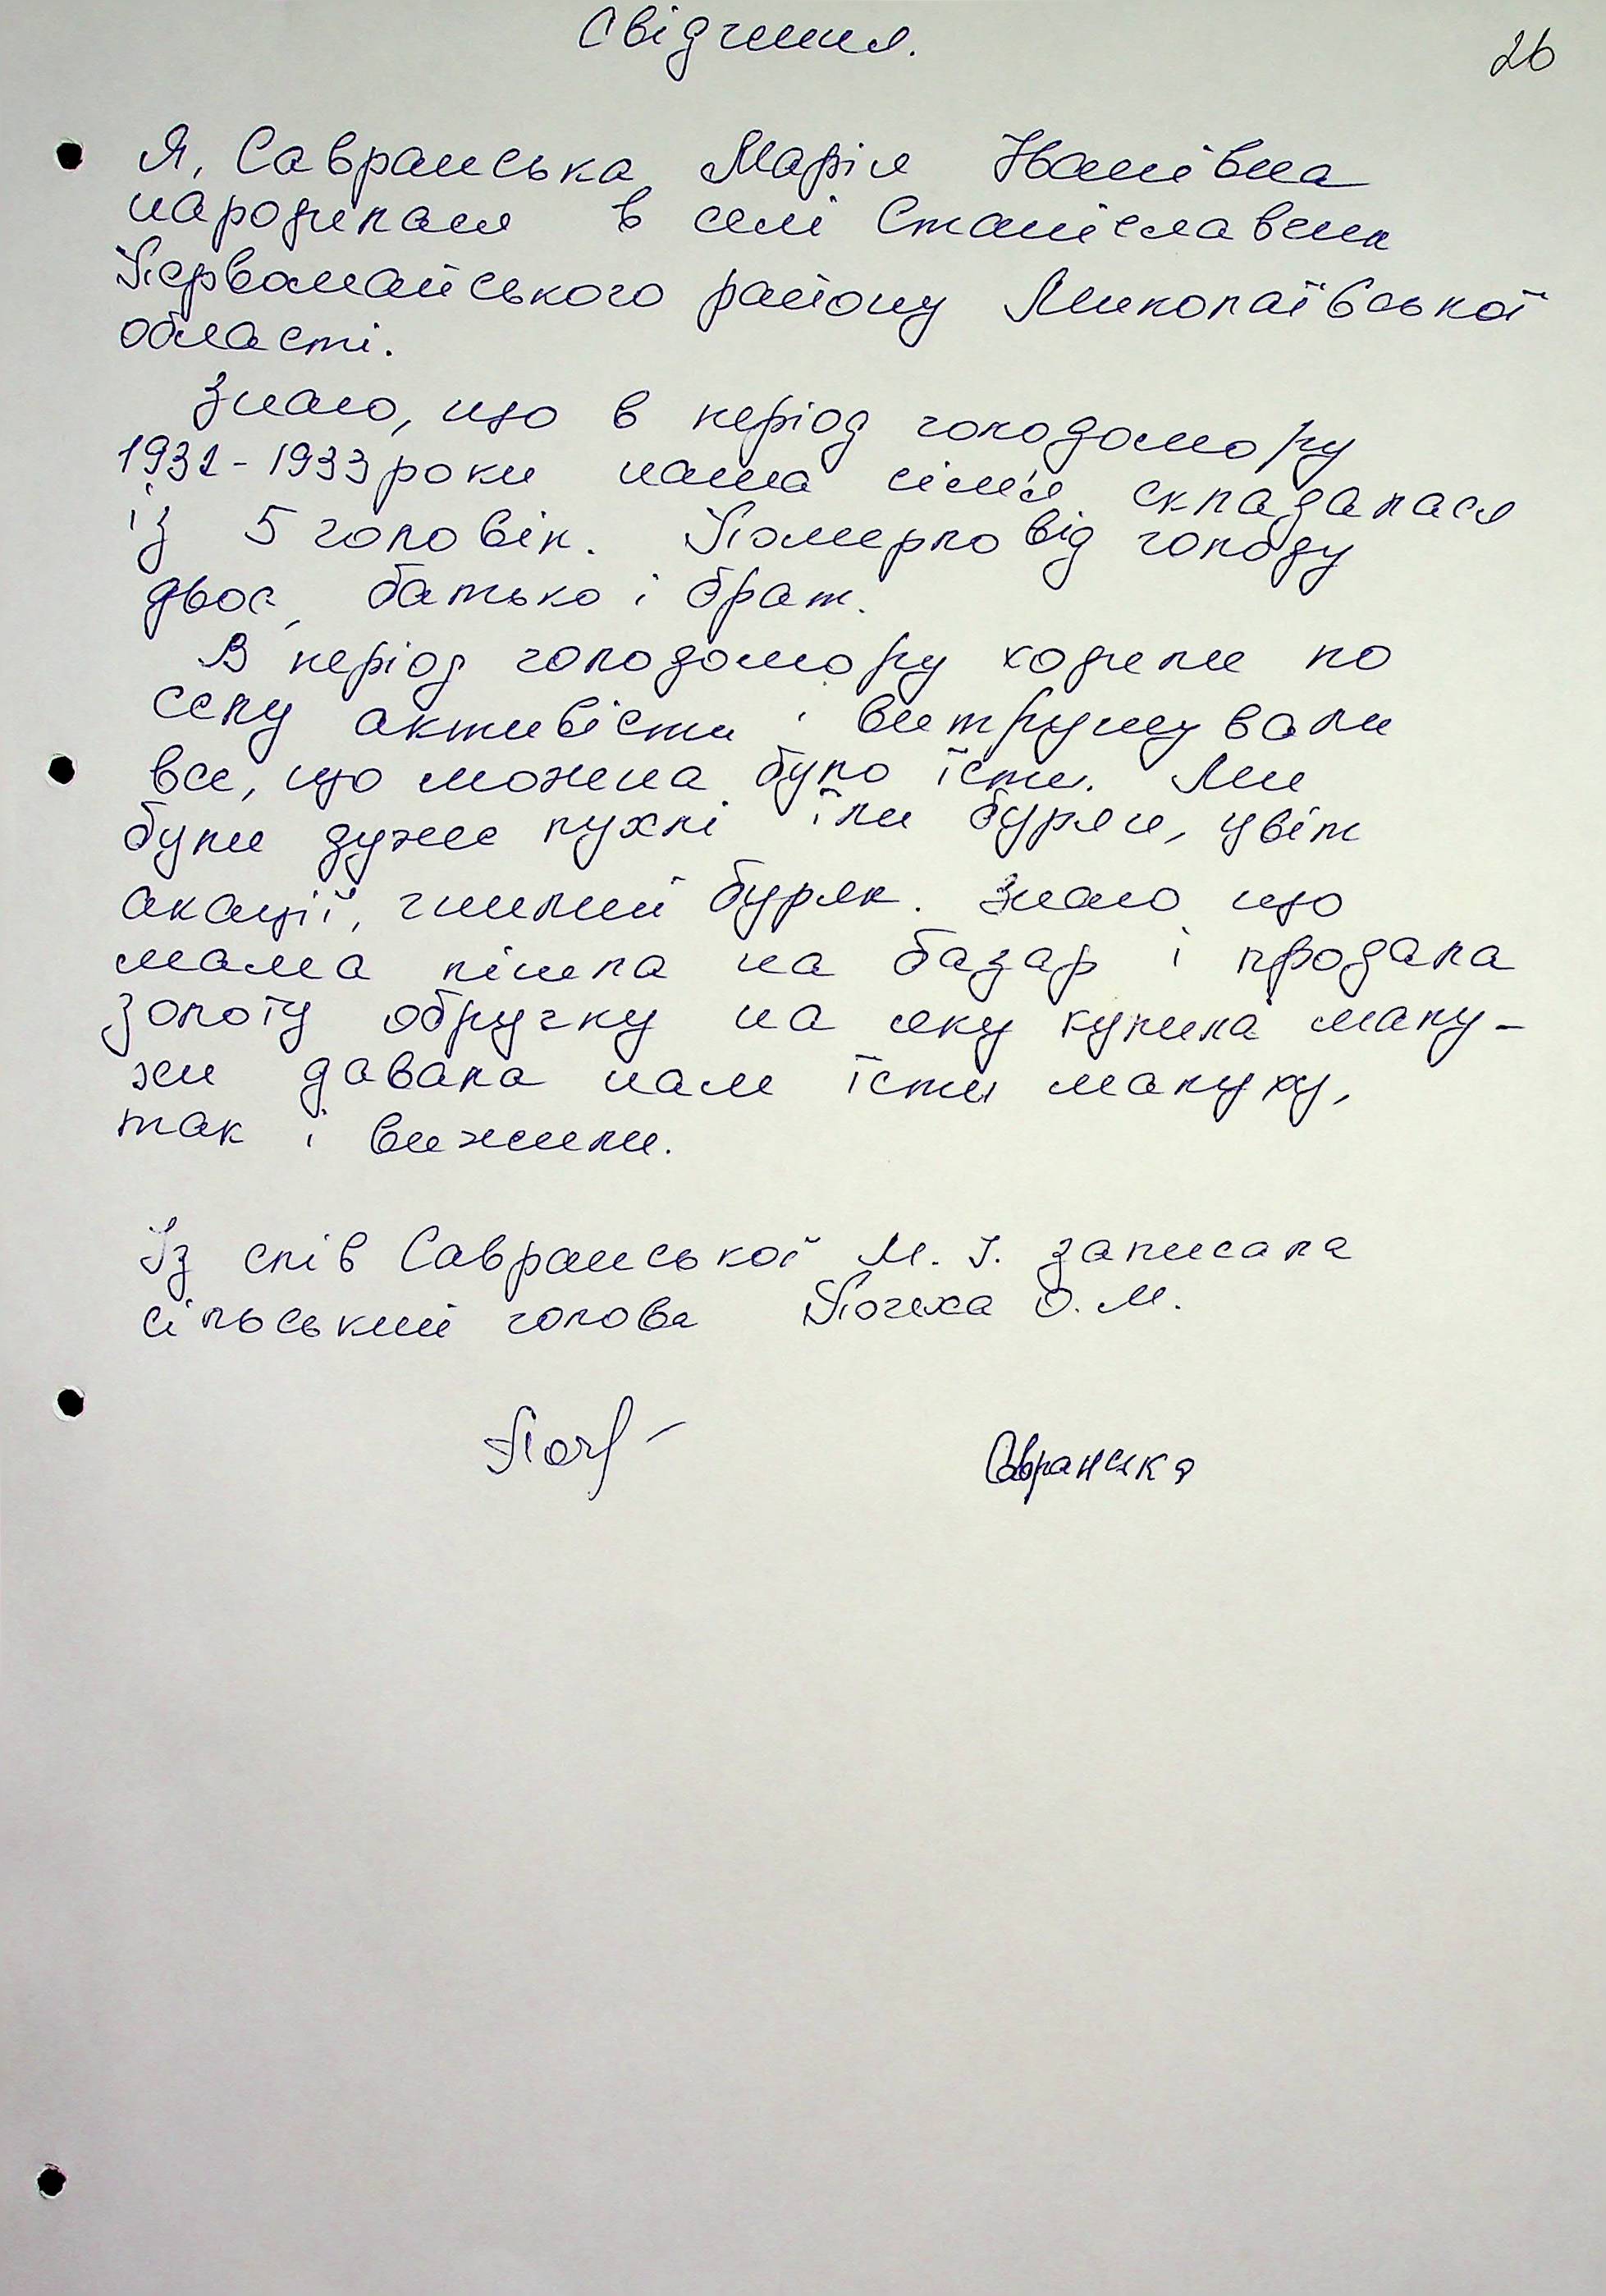 Свідчення.
26
Я, Савранська Марія Іванівна
народилася в селі Станіславчик
Первомайського району Миколаївської
області.
Знаю, що в період голодомору
1932-1933 роки наша сім'я складалася
із 5 чоловік. Померло від голоду
двоє, батько і брат.
В період голодомору ходили по
селу активісти і витрушували
все, що можна було їсти. Ми
були дуже пухлі їли бур'ян, цвіт
акації, гнилий буряк. Знаю що
мама пішла на базар і продала
золоту обручку на яку купила маку-
хи давала нам їсти макуху,
так і вижили.
Із слів Савранської М. І. записала
сільський голова О. М.
Савранська